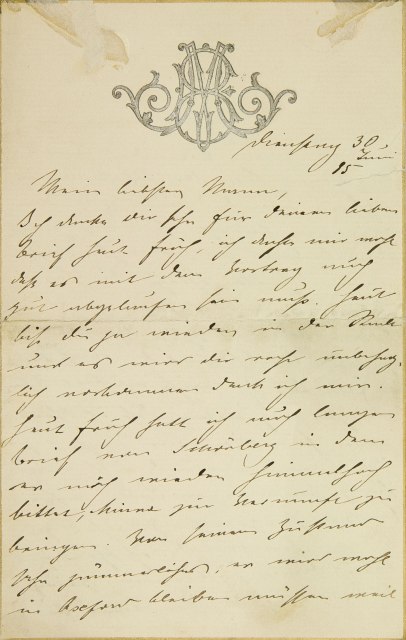 Dienstag 30
Juni
95
Mein liebster Mann,
Ich danke Dir sehr für Deinen lieben
Brief heut früh, ich dachte mir wohl
daß es mit dem Vortrag auch
gut abgelaufen sein muß. Heut
bist du ja wieder in der Stadt
und es wird dir recht unbehag-
lich vorkommen denk ich mir.
Heut früh hatt ich auch langen
Brief von Schönberg in dem
er mich wieder himmelhoch
bittet, Minna zur Vernunft zu
bringen. Von seinem Zustand
sehr jämmerliches, er wird wohl
in bleiben müssen weil